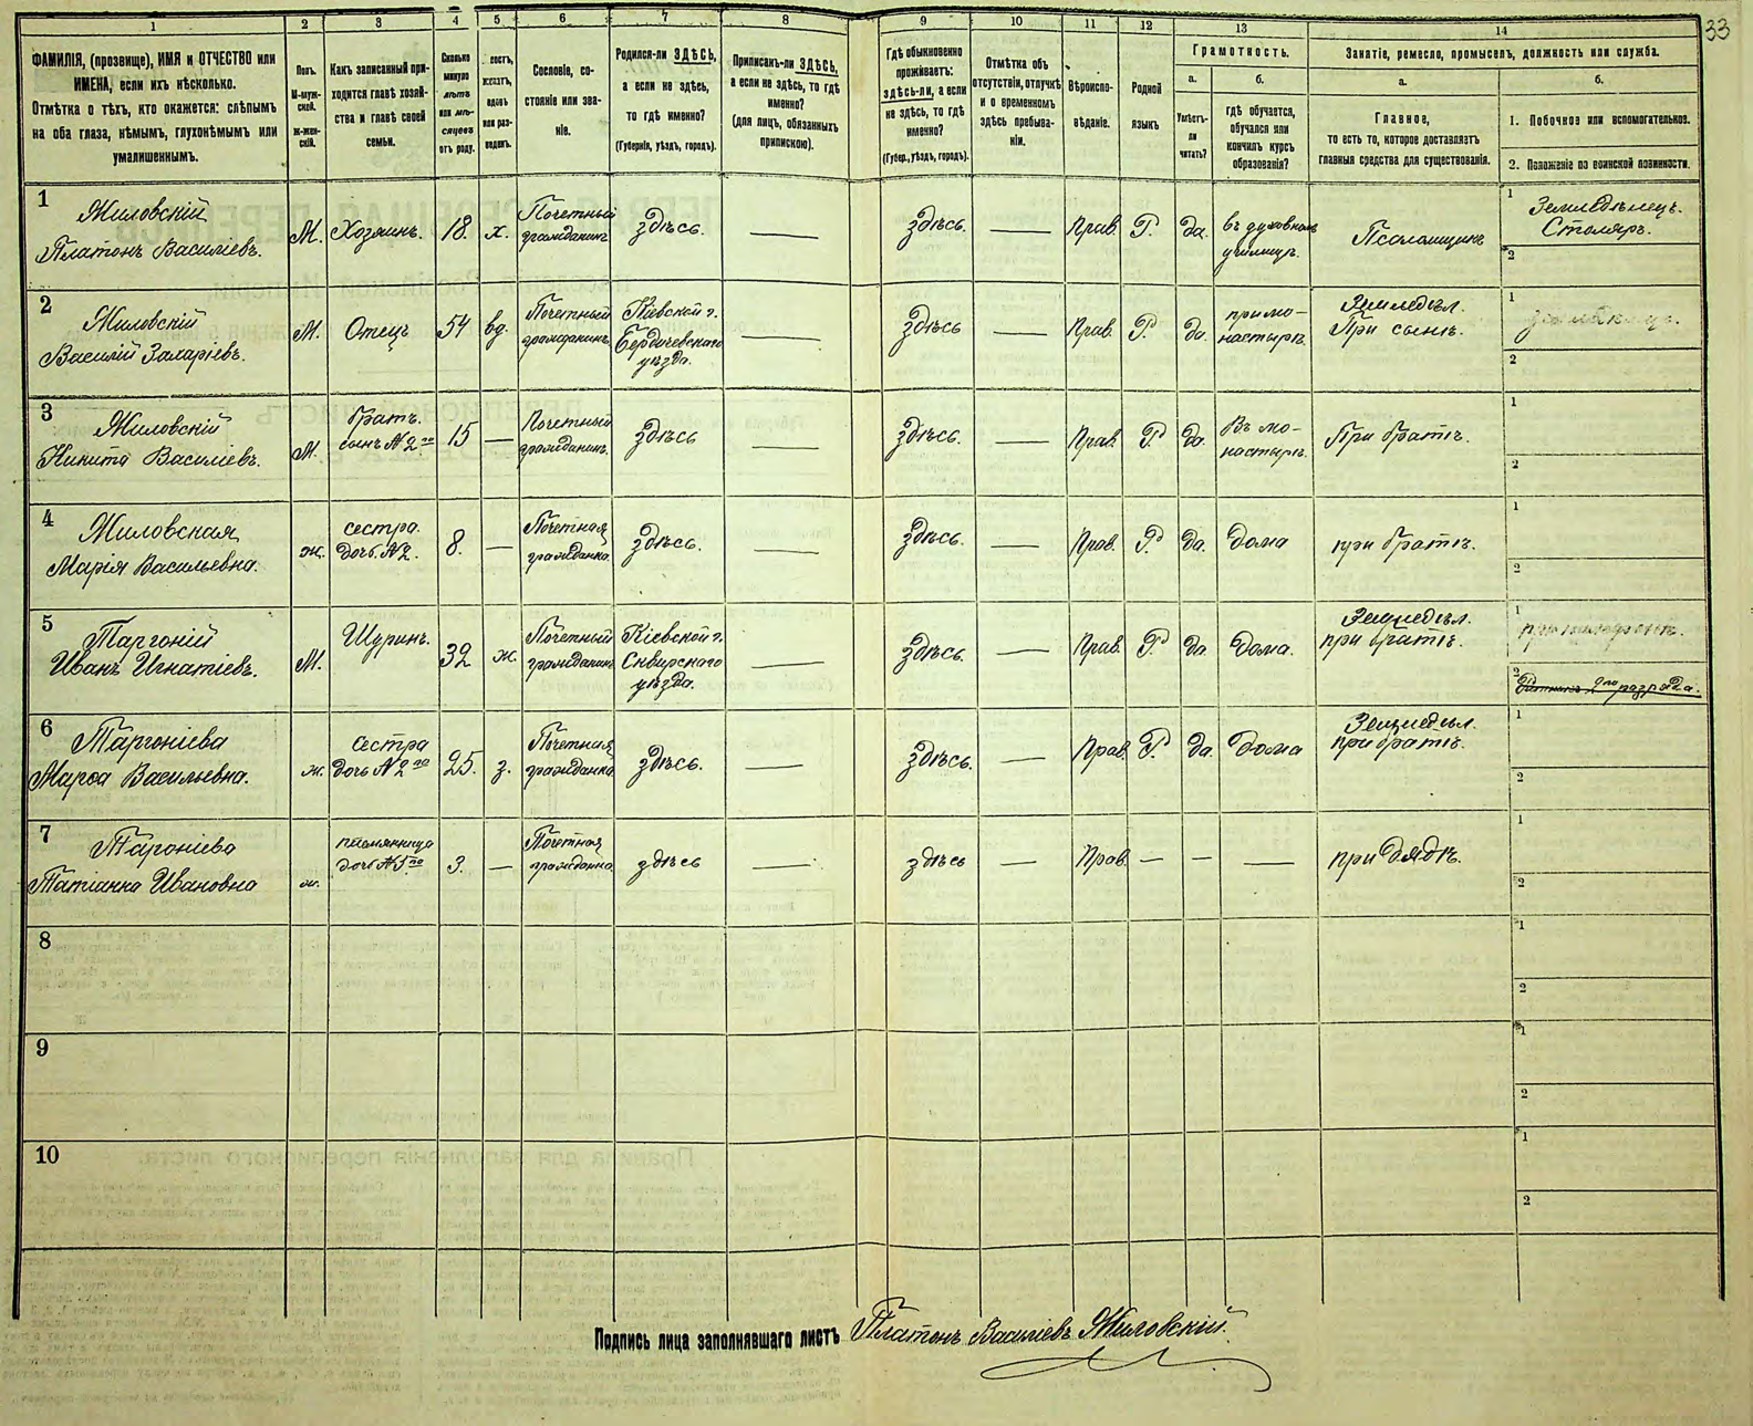 33
1
2
3
4
5
6
7
8
9
10
11
12
13
14
ФАМИЛІЯ, (прозвище), ИМЯ и ОТЧЕСТВО или
ИМЕНА, если ихъ нѣсколько.
Отмѣтка о тѣхъ, кто окажется: слѣпымъ
на оба глаза, нѣмымъ, глухонѣмымъ или
умалишеннымъ.
Полъ.
М-муж-
ской.
Ж-жен-
скій.
Какъ записанный при-
ходится главѣ хозяй-
ства и главѣ своей
семьи.
Сколько
минуло
лѣтъ
или мѣ-
сяцевъ
отъ роду.
лостъ,
женатъ,
вдовъ
или раз-
веденъ.
Сословіе, со-
стояніе или зва-
ніе.
Родился-ли ЗДѢСЬ,
а если не здѣсь,
то гдѣ именно?
(Губернія, уѣздъ, городъ).
Приписанъ-ли ЗДѢСЬ,
а если не здѣсь, то гдѣ
именно?
(для лицъ, обязанныхъ
припискою).
Гдѣ обыкновенно
проживаетъ:
здѣсь-ли, а если
не здѣсь, то гдѣ
именно?
(Губер., уѣздъ, городъ).
Отмѣтка объ
отсутствіи, отлучкѣ
и о временномъ
здѣсь пребыва-
ніи.
Вѣроиспо-
вѣданіе.
Родной
языкъ
Грамотность.
а.
Умѣетъ-
ли
читать?
б.
гдѣ обучается,
обучался или
кончилъ курсъ
образованія?
Занятіе, ремесло, промыселъ, должность или служба.
а.
Главное,
то есть то, которое доставляетъ
главныя средства для существованія.
б.
1. Побочное или вспомогательное.
2. Положеніе по воинской повинности.
1
Жиловскій
Платонъ Василіевъ.
М.
Хозяинъ.
18.
х.
Почетный
гражданинъ
здѣсь.
—
здѣсь.
—
Прав.
Р.
да.
въ духовномъ
училищѣ.
Псаломщикъ
1
Земледѣлецъ.
Столяръ.
2
2
Жиловскій
Василій Захаріевъ.
М.
Отецъ
54
вд.
Почетный
гражданинъ
Кіевской г.
Бердичевскаго
уѣзда.
—
здѣсь
—
Прав.
Р.
да.
при мо-
настырѣ.
Земледѣл.
При сынѣ.
1
2
3
Жиловскій
Никита Василіевъ.
М.
братъ.
сынъ №2го
15
—
Почетный
гражданинъ.
здѣсь
здѣсь.
—
Прав.
Р.
да.
Въ мо-
настырѣ.
При братѣ.
1
2
4
Жиловская
Марія Васильевна.
ж.
сестра.
дочь №2.
8.
—
Почетная
гражданка.
здѣсь.
—
здѣсь.
—
Прав.
Р.
да.
дома
при братѣ.
1
2
5
Таргоній
Иванъ Игнатіевъ.
М.
Шуринъ.
32
ж.
Почетный
гражданинъ
Кіевской г.
Сквирскаго
уѣзда.
—
здѣсь.
—
Прав.
Р.
да
дома.
Земледѣл.
при братѣ.
1
2
2го разряда.
6
Таргоніева
Марѳа Васильевна.
ж.
сестра
дочь №2го
25.
з.
Почетная
гражданка
здѣсь.
—
здѣсь.
—
Прав.
Р.
да.
дома
Земледѣл.
при братѣ.
1
2
7
Таргоніева
Татіанна Ивановна
ж.
племянница
дочь №5го
3.
—
Почетная
гражданка
здѣсь
—
здѣсь
—
Прав.
—
—
—
при дядѣ.
1
2
8
1
2
9
1
2
10
1
2
Подпись лица заполнявшаго листъ Платонъ Василіевъ Жиловскій.